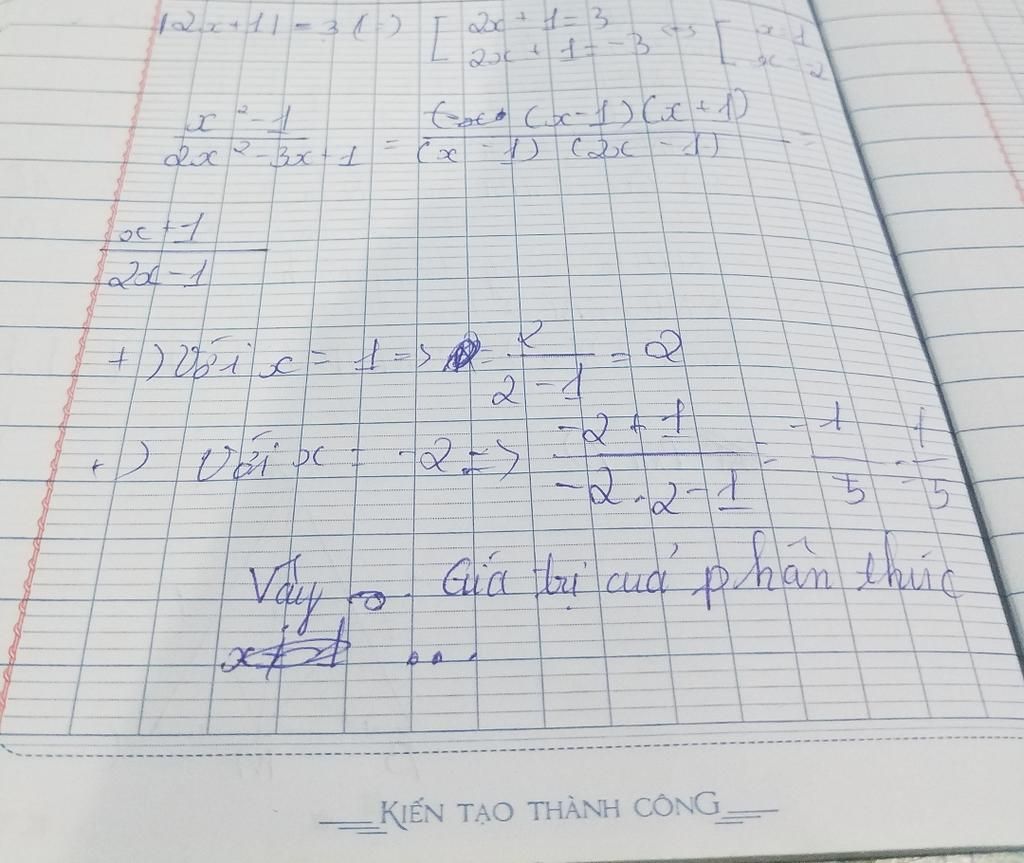 |2x+1| = 3 (=) [ 2x + 1 = 3 <=> [ x = 1
2x + 1 = -3 x = -2
x² - 1 / 2x² - 3x + 1 = (x-1)(x+1) / (x-1)(2x-1) =
x+1 / 2x-1
+) Với x = 1 => = 2 / 2-1 = 2
+) Với x = -2 => -2+1 / -2.2-1 = -1 / -5 = 1 / 5
Vậy Giá trị cuả phân thức
...
KIẾN TẠO THÀNH CÔNG